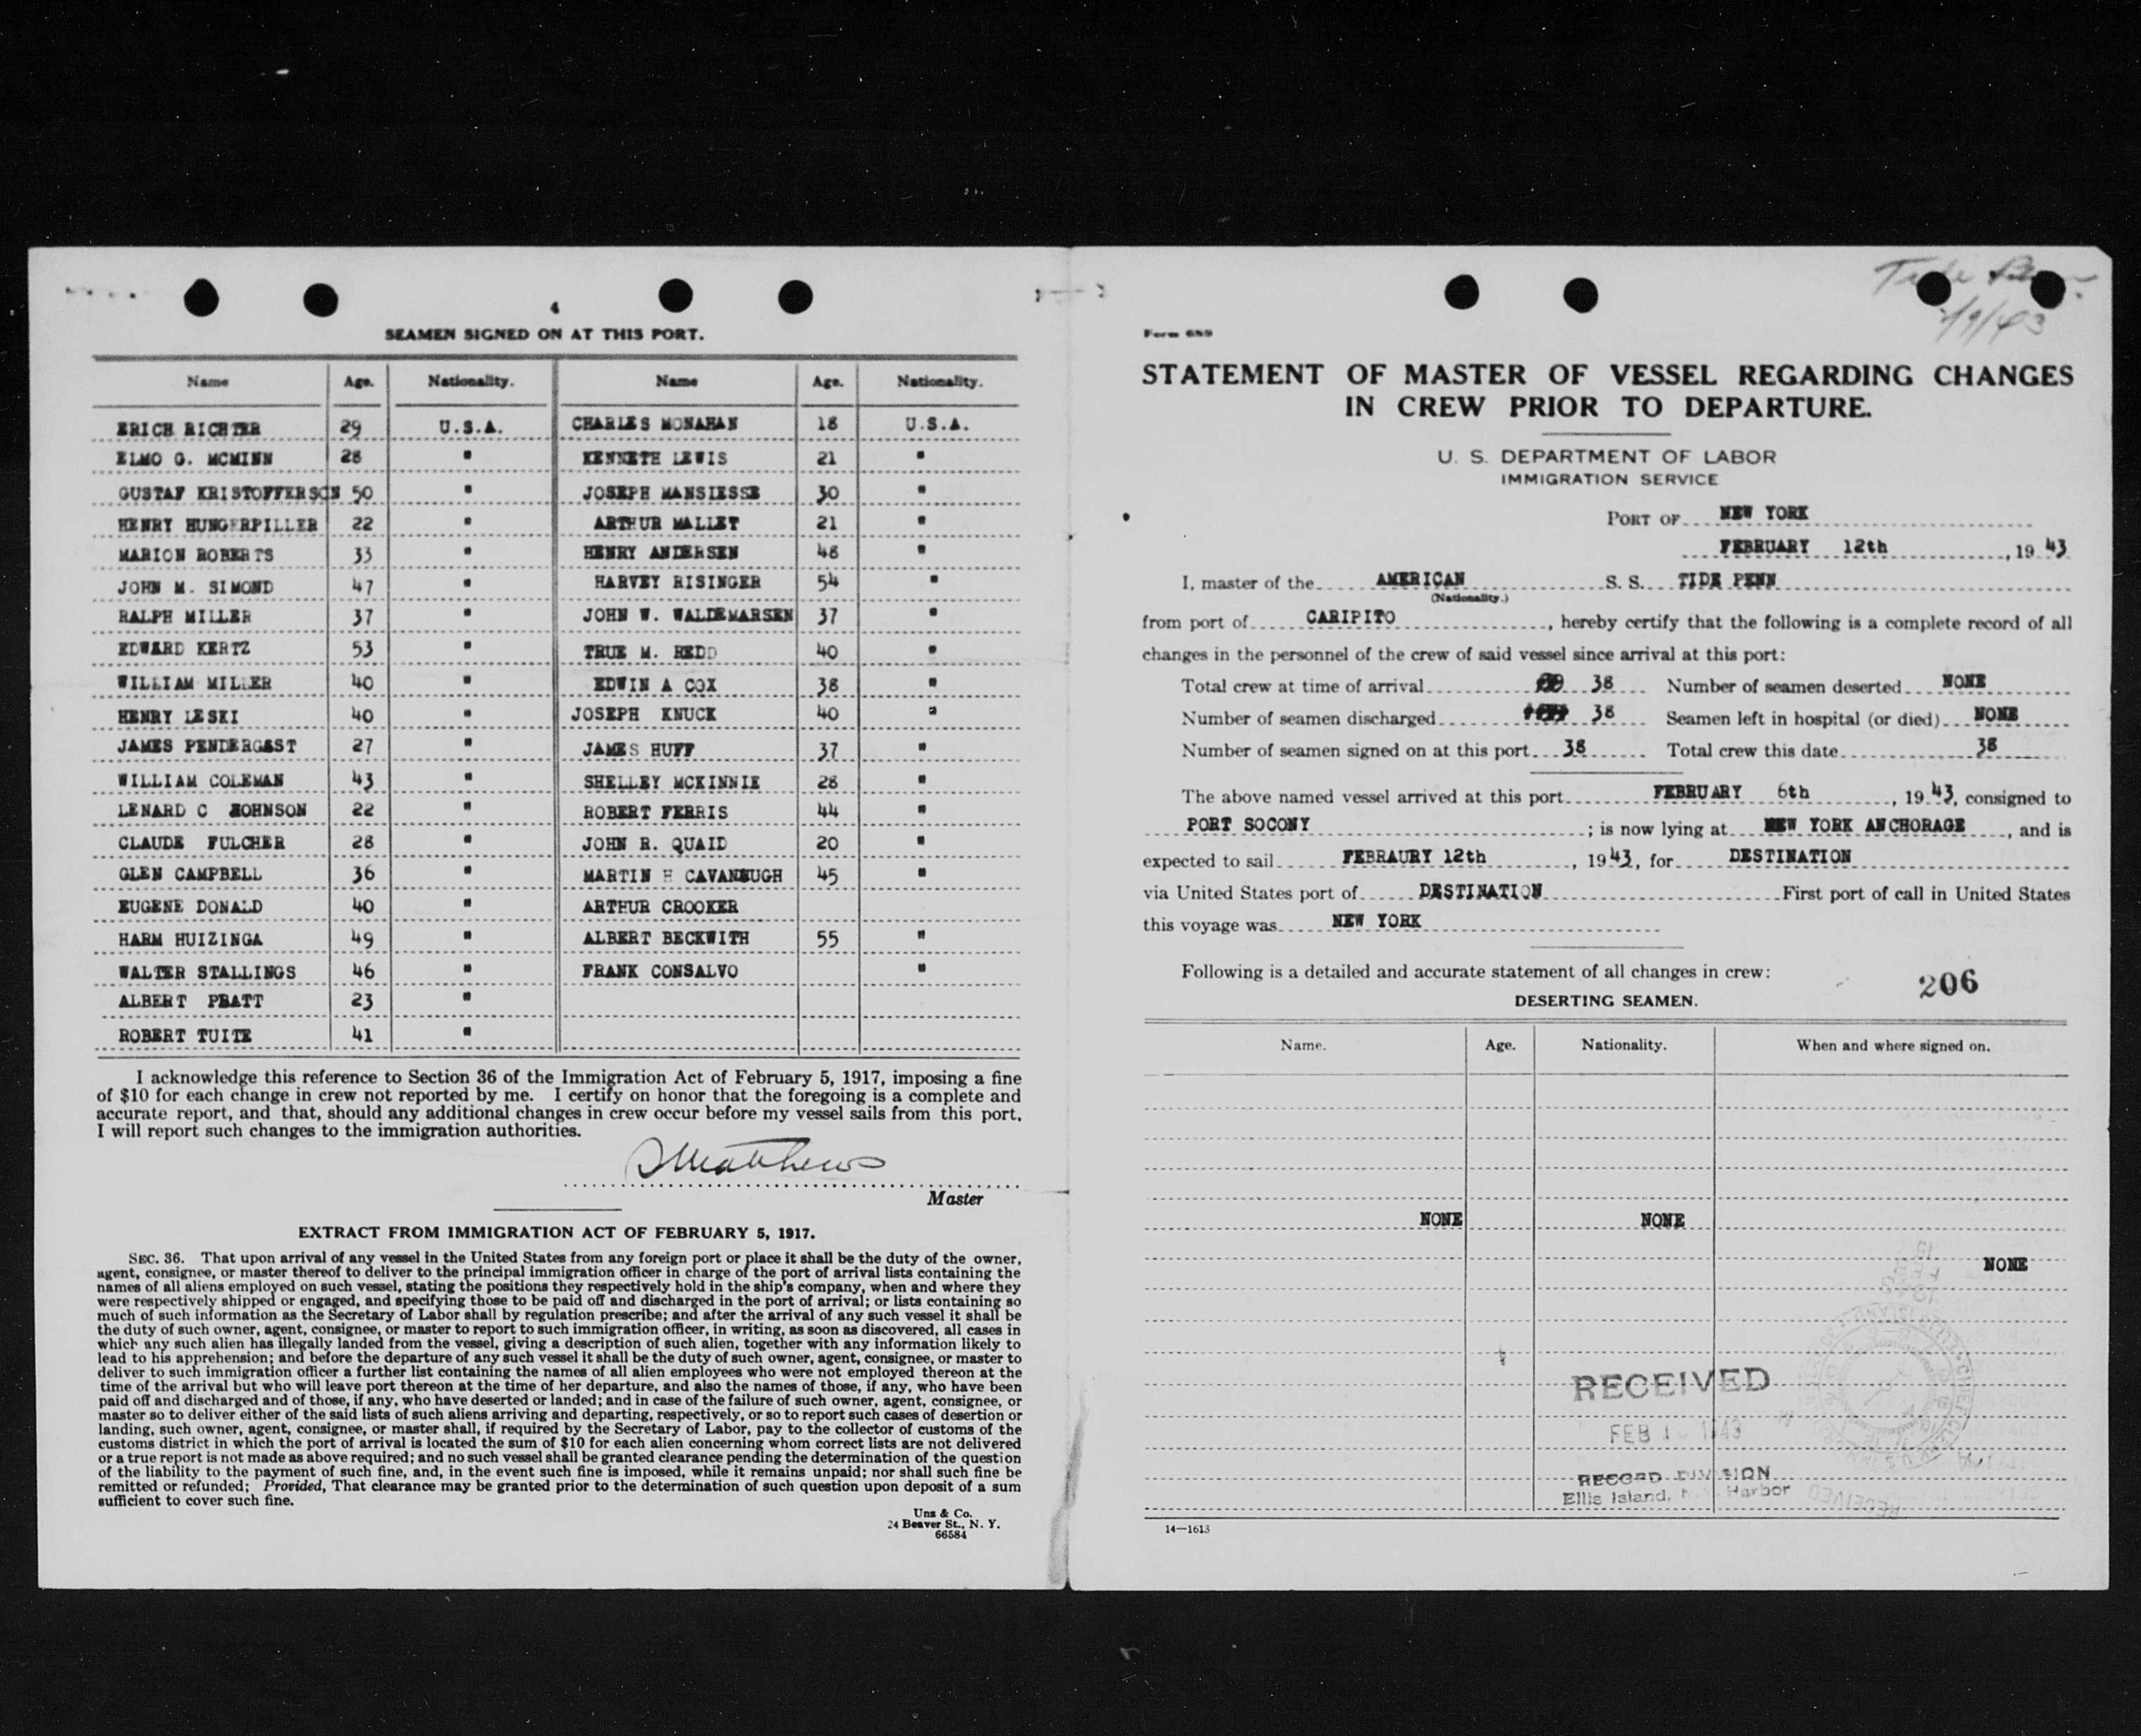 4
SEAMEN SIGNED ON AT THIS PORT.
Name Age. Nationality. Name Age. Nationality.
ERICH RICHTER 29 U.S.A. CHARLES MONAHAN 18 U.S.A.
ELMO G. MCMINN 28 " KENNETH LEWIS 21 "
GUSTAF KRISTOFFERSON 50 " JOSEPH MANSIESSE 30 "
HENRY HUNGERPILLER 22 " ARTHUR MALLET 21 "
MARION ROBERTS 33 " HENRY ANDERSEN 48 "
JOHN M. SIMOND 47 " HARVEY RISINGER 54 "
RALPH MILLER 37 " JOHN W. WALDEMARSEN 37 "
EDWARD KERTZ 53 " TRUE M. REDD 40 "
WILLIAM MILLER 40 " EDWIN A COX 38 "
HENRY LESKI 40 " JOSEPH KNUCK 40 "
JAMES PENDERGAST 27 " JAMES HUFF 37 "
WILLIAM COLEMAN 43 " SHELLEY MCKINNIE 28 "
LENARD C JOHNSON 22 " ROBERT FERRIS 44 "
CLAUDE FULCHER 28 " JOHN R. QUAID 20 "
GLEN CAMPBELL 36 " MARTIN H CAVANAUGH 45 "
EUGENE DONALD 40 " ARTHUR CROOKER
HARM HUIZINGA 49 " ALBERT BECKWITH 55 "
WALTER STALLINGS 46 " FRANK CONSALVO "
ALBERT PRATT 23 "
ROBERT TUITE 41 "
I acknowledge this reference to Section 36 of the Immigration Act of February 5, 1917, imposing a fine
of $10 for each change in crew not reported by me. I certify on honor that the foregoing is a complete and
accurate report, and that, should any additional changes in crew occur before my vessel sails from this port,
I will report such changes to the immigration authorities.
Matthews
Master
EXTRACT FROM IMMIGRATION ACT OF FEBRUARY 5, 1917.
SEC. 36. That upon arrival of any vessel in the United States from any foreign port or place it shall be the duty of the owner,
agent, consignee, or master thereof to deliver to the principal immigration officer in charge of the port of arrival lists containing the
names of all aliens employed on such vessel, stating the positions they respectively hold in the ship's company, when and where they
were respectively shipped or engaged, and specifying those to be paid off and discharged in the port of arrival; or lists containing so
much of such information as the Secretary of Labor shall by regulation prescribe; and after the arrival of any such vessel it shall be
the duty of such owner, agent, consignee, or master to report to such immigration officer, in writing, as soon as discovered, all cases in
which any such alien has illegally landed from the vessel, giving a description of such alien, together with any information likely to
lead to his apprehension; and before the departure of any such vessel it shall be the duty of such owner, agent, consignee, or master to
deliver to such immigration officer a further list containing the names of all alien employees who were not employed thereon at the
time of the arrival but who will leave port thereon at the time of her departure, and also the names of those, if any, who have been
paid off and discharged and of those, if any, who have deserted or landed; and in case of the failure of such owner, agent, consignee, or
master so to deliver either of the said lists of such aliens arriving and departing, respectively, or so to report such cases of desertion or
landing, such owner, agent, consignee, or master shall, if required by the Secretary of Labor, pay to the collector of customs of the
customs district in which the port of arrival is located the sum of $10 for each alien concerning whom correct lists are not delivered
or a true report is not made as above required; and no such vessel shall be granted clearance pending the determination of the question
of the liability to the payment of such fine, and, in the event such fine is imposed, while it remains unpaid; nor shall such fine be
remitted or refunded; Provided, That clearance may be granted prior to the determination of such question upon deposit of a sum
sufficient to cover such fine.
Unz & Co.
24 Beaver St., N. Y.
66584
Tide Penn
Form 689
STATEMENT OF MASTER OF VESSEL REGARDING CHANGES
IN CREW PRIOR TO DEPARTURE.
U. S. DEPARTMENT OF LABOR
IMMIGRATION SERVICE
PORT OF NEW YORK
FEBRUARY 12th, 1943
I, master of the AMERICAN S. S. TIDE PENN
(Nationality.)
from port of CARIPITO, hereby certify that the following is a complete record of all
changes in the personnel of the crew of said vessel since arrival at this port:
Total crew at time of arrival 38 Number of seamen deserted NONE
Number of seamen discharged 38 Seamen left in hospital (or died) NONE
Number of seamen signed on at this port 38 Total crew this date 38
The above named vessel arrived at this port FEBRUARY 6th, 1943, consigned to
PORT SOCONY; is now lying at NEW YORK ANCHORAGE, and is
expected to sail FEBRAURY 12th, 1943, for DESTINATION
via United States port of DESTINATION First port of call in United States
this voyage was NEW YORK
Following is a detailed and accurate statement of all changes in crew:
206
DESERTING SEAMEN.
Name. Age. Nationality. When and where signed on.
NONE NONE
NONE
RECEIVED
FEB 1 1943
RECORD DIVISION
Ellis Island, N. Y. Harbor
14—1613